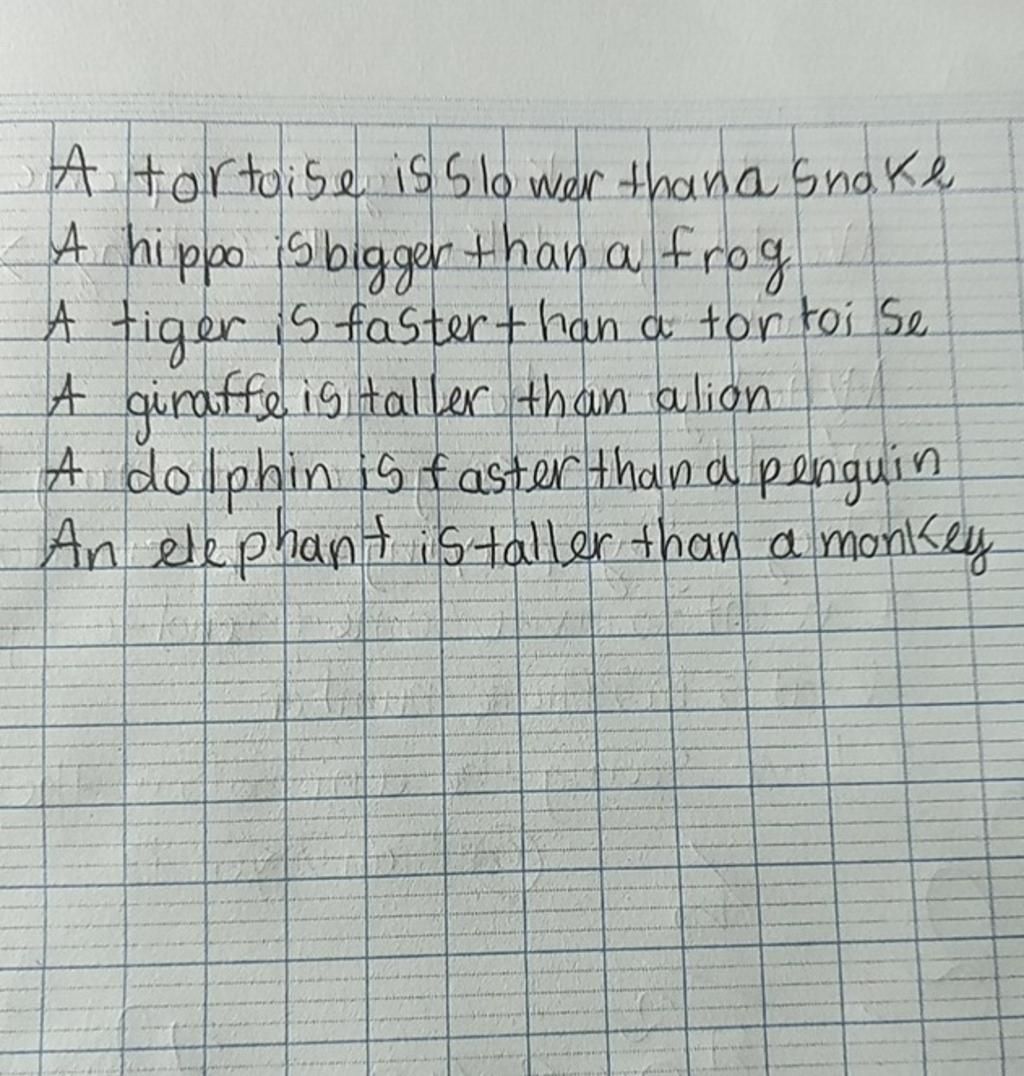 A tortoise is slower than a snake
A hippo is bigger than a frog
A tiger is faster than a tortoise
A giraffe is taller than a lion
A dolphin is faster than a penguin
An elephant is taller than a monkey